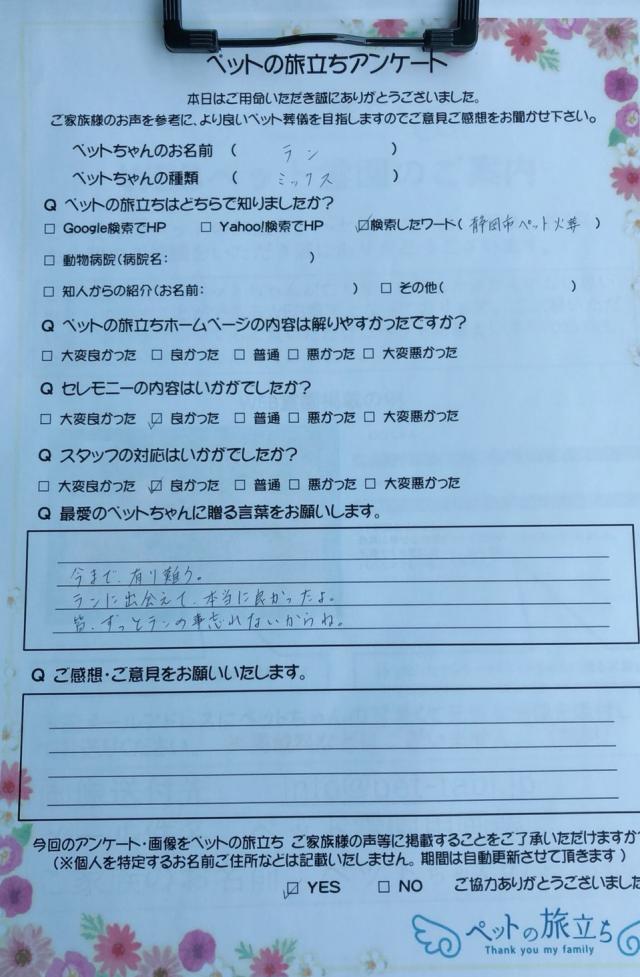 ペットの旅立ちアンケート
本日はご用命いただき誠にありがとうございました。
ご家族様のお声を参考に、より良いペット葬儀を目指しますのでご意見ご感想をお聞かせ下さい。
ペットちゃんのお名前 ( ラン )
ペットちゃんの種類 ( ミックス )
Q ペットの旅立ちはどちらで知りましたか?
□ Google検索でHP □ Yahoo!検索でHP ☑検索したワード( 静岡市ペット火葬 )
□ 動物病院(病院名: )
□ 知人からの紹介(お名前: ) □ その他( )
Q ペットの旅立ちホームページの内容は解りやすかったですか?
□ 大変良かった □ 良かった □ 普通 □ 悪かった □ 大変悪かった
Q セレモニーの内容はいかがでしたか?
□ 大変良かった ☑ 良かった □ 普通 □ 悪かった □ 大変悪かった
Q スタッフの対応はいかがでしたか?
□ 大変良かった ☑ 良かった □ 普通 □ 悪かった □ 大変悪かった
Q 最愛のペットちゃんに贈る言葉をお願いします。
今まで、有り難う。
ランに出会えて、本当に良かったよ。
皆、ずっとランの事忘れないからね。
Q ご感想・ご意見をお願いいたします。
今回のアンケート・画像をペットの旅立ち ご家族様の声等に掲載することをご了承いただけますか?
(※個人を特定するお名前ご住所などは記載いたしません。期間は自動更新させて頂きます)
☑ YES □ NO ご協力ありがとうございました
ペットの旅立ち
Thank you my family